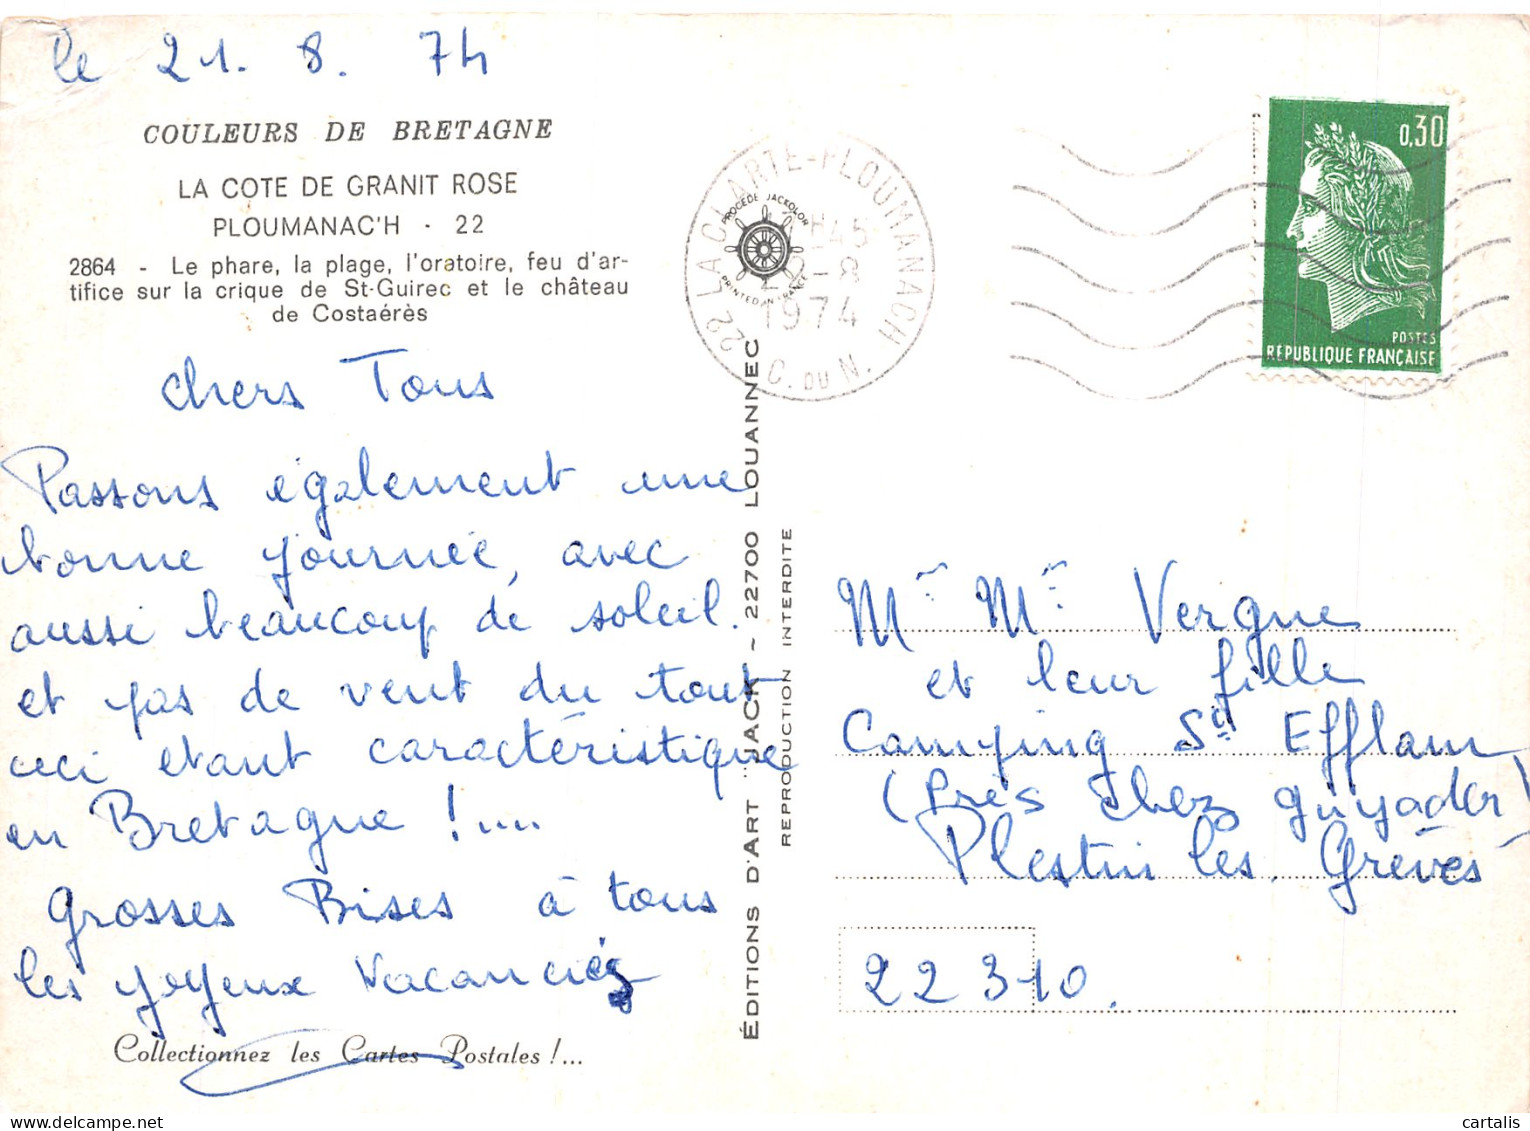 le 21. 8. 74
COULEURS DE BRETAGNE
LA COTE DE GRANIT ROSE
PLOUMANAC'H - 22
2864 - Le phare, la plage, l'oratoire, feu d'ar-
tifice sur la crique de St-Guirec et le château
de Costaérès
chers Tous
Passons également une
bonne journée, avec
aussi beaucoup de soleil.
et pas de vent du tout
ceci etant caractéristique
en Bretagne !....
Grosses Bises à tous
les joyeux Vacanciers
Collectionnez les Cartes Postales !...
ÉDITIONS D'ART "JACK" ~ 22700 LOUANNEC
REPRODUCTION INTERDITE
22 LA CLARTE-PLOUMANACH
C. DU N.
H45
22-8
1974
PROCÉDÉ JACKOLOR
PRINTED IN FRANCE
0,30
POSTES
RÉPUBLIQUE FRANÇAISE
Mr Me Vergne
et leur fille
Camping St Efflam
(Près chez Guyader)
Plestin les Grèves
22310.
cartalis